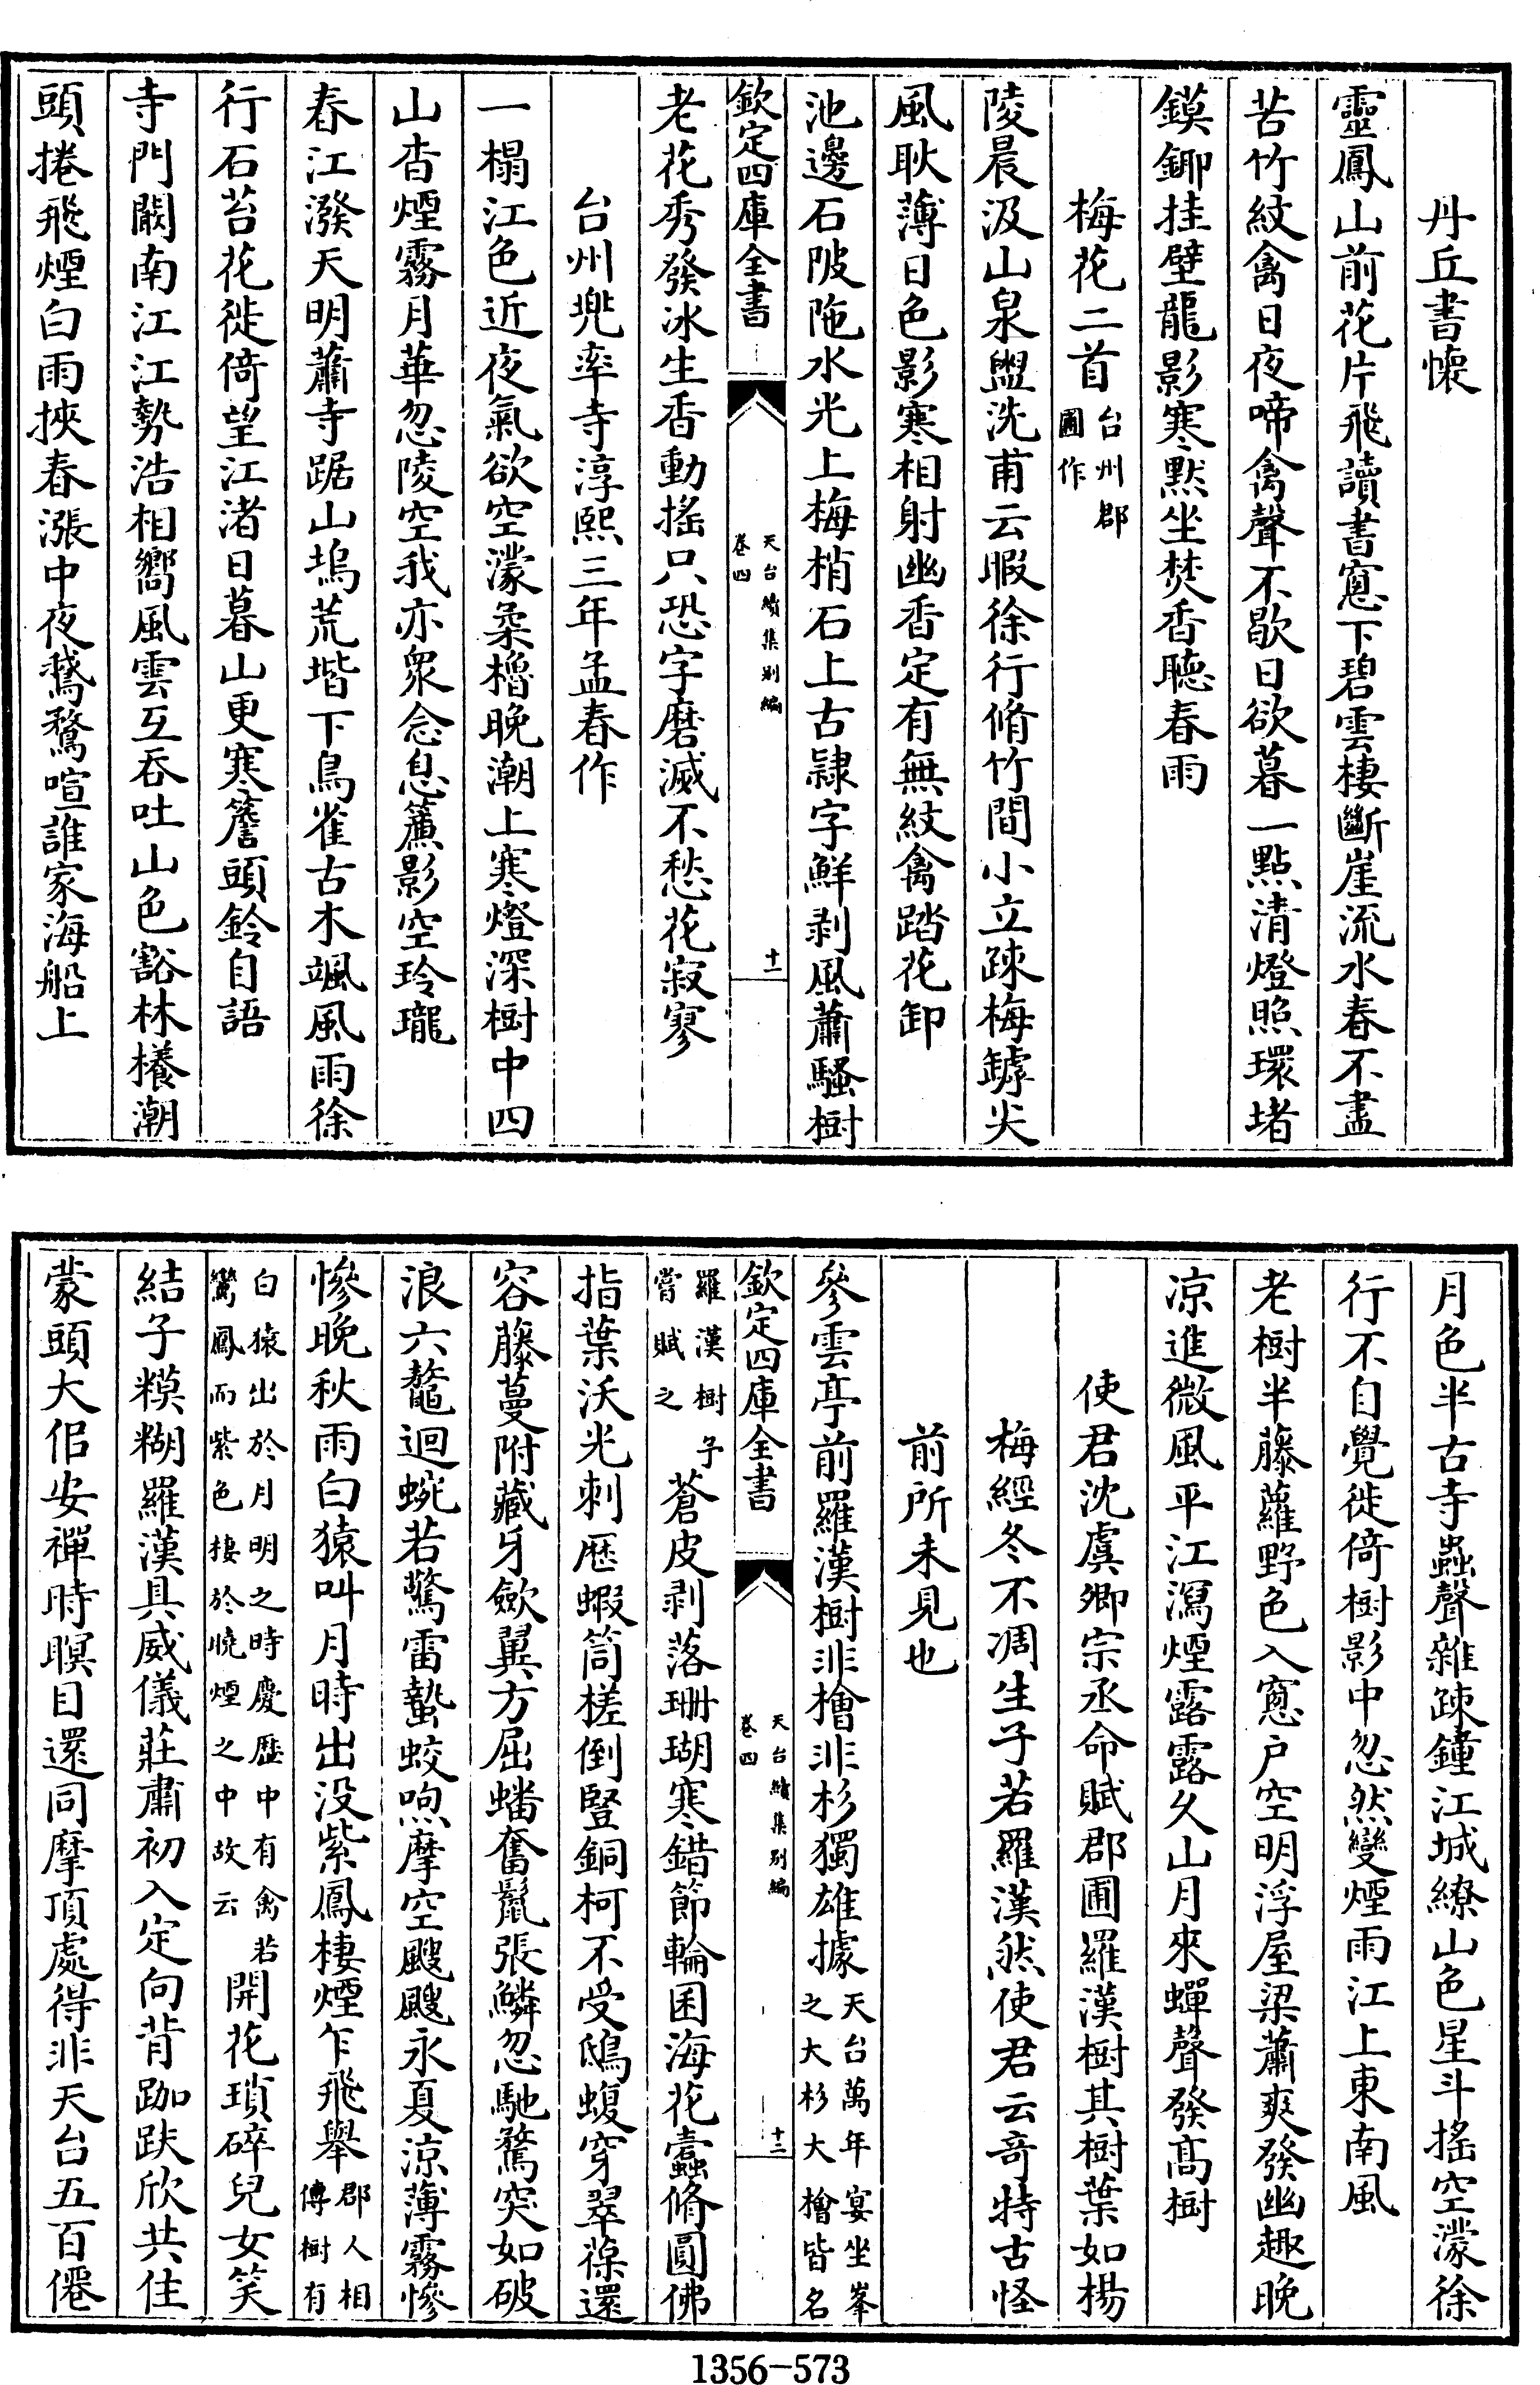 丹丘書懷
靈鳳山前花片飛讀書窻下碧雲棲斷崖流水春不盡
苦竹紋禽日夜啼禽聲不歇日欲暮一點清燈照環堵
鏌鎁挂壁龍影寒默坐焚香聽春雨
梅花二首台州郡圃作
陵晨汲山泉盥洗甫云暇徐行脩竹間小立踈梅罅尖
風耿薄日色影寒相射幽香定有無紋禽踏花卸
池邊石陂陁水光上梅梢石上古隷字鮮剥風蕭騷樹
欽定四庫全書
天台續集别編
卷四
十一
老花秀發冰生香動搖只恐字磨滅不愁花寂寥
台州兠率寺淳熙三年孟春作
一榻江色近夜氣欲空濛柔櫓晚潮上寒燈深樹中四
山杳煙霧月華忽陵空我亦衆念息簾影空玲瓏
春江潑天明蕭寺踞山塢荒堦下鳥雀古木颯風雨徐
行石苔花徙倚望江渚日暮山更寒簷頭鈴自語
寺門闞南江江勢浩相嚮風雲互吞吐山色豁林㯭潮
頭捲飛煙白雨挾春漲中夜鵞鶩喧誰家海船上
月色半古寺蟲聲雜踈鐘江城繚山色星斗搖空濛徐
行不自覺徙倚樹影中忽然變煙雨江上東南風
老樹半藤蘿野色入窻户空明浮屋梁蕭爽發幽趣晚
凉進微風平江瀉煙露露久山月來蟬聲發髙樹
使君沈虞卿宗丞命賦郡圃羅漢樹其樹葉如楊
梅經冬不凋生子若羅漢然使君云竒特古怪
前所未見也
參雲亭前羅漢樹非檜非杉獨雄據天台萬年宴坐峯之大杉大檜皆名
欽定四庫全書
天台續集别編
卷四
十二
羅漢樹子嘗賦之蒼皮剥落珊瑚寒錯節輪囷海花蠧脩圓佛
指葉沃光刺歴蝦筒槎倒豎銅柯不受鴟蝮穿翠葆還
容藤蔓附藏牙歛翼方屈蟠奮鬛張鱗忽馳騖突如破
浪六鼇迴蜿若驚雷蟄蛟呴摩空颼颼永夏凉薄霧慘
慘晚秋雨白猿叫月時出没紫鳳棲煙乍飛舉郡人相傳樹有
白猿出於月明之時慶歴中有禽若鸞鳳而紫色棲於曉煙之中故云開花瑣碎兒女笑
結子糢糊羅漢具威儀莊肅初入定向背跏趺欣共住
蒙頭大佀安禪時瞑目還同摩頂處得非天台五百僊
1356-573